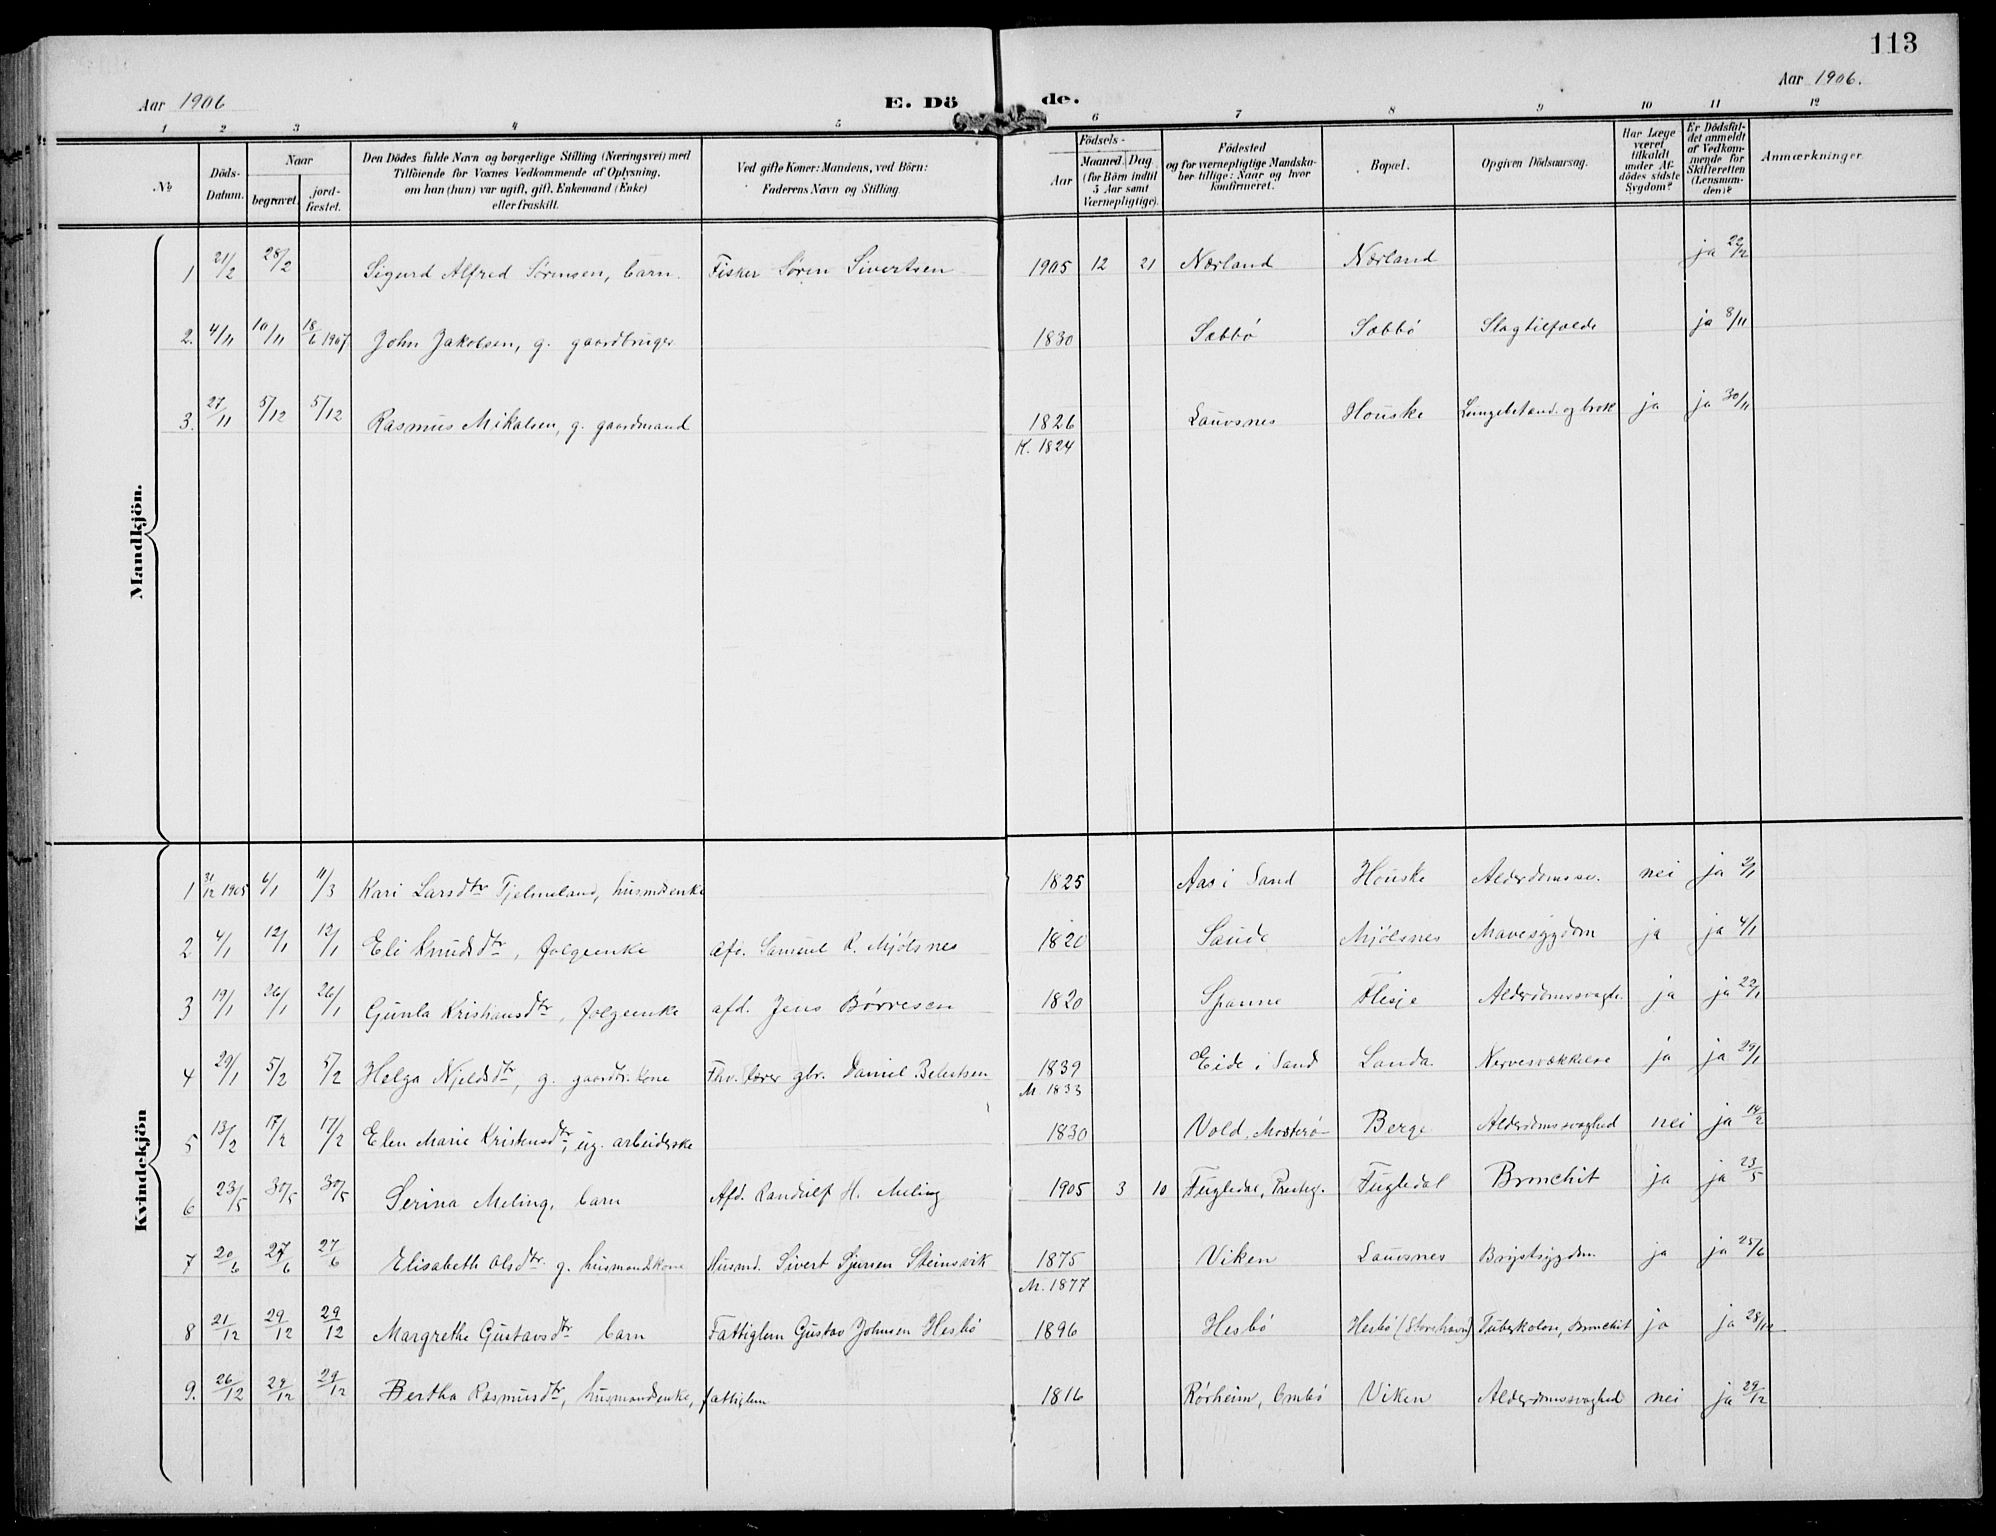 113
Aar 1906
E. Dö de.
Aar 1906.
1 2 3 4 5 6 7 8 9 10 11 12
№
Döds-Datum.
Naar
begravet.
jord-fæstet.
Den Dödes fulde Navn og borgerlige Stilling (Næringsvei) med
Tilföiende for Voxnes Vedkommende af Oplysning,
om han (hun) var ugift, gift, Enkemand (Enke)
eller fraskilt.
Ved gifte Koner: Mandens, ved Börn:
Faderens Navn og Stilling.
Födsels-
Aar
Maaned. Dag.
(for Börn indtil
5 Aar samt
Værnepligtige).
Födested
og for værnepligtige Mandska-
ber tillige: Naar og hvor
konfirmeret.
Bopæl.
Opgiven Dödsaarsag.
Har Læge
været
tilkaldt
under Af-
dödes sidste
Sygdom?
Er Dödsfal-
det anmeldt
af Vedkom-
mende for
Skifteretten
(Lensman-
den)?
Anmærkninger.
Mandkjön.
1 21/2 28/2 Sigurd Alfred Sørensen, barn. Fisker Søren Sivertsen 1905 12 21 Nærland Nærland ja 22/12
2. 4/11 10/11 18/6 1907 John Jakobsen, g. gaardbruger 1830 Sæbbö Sæbbö Slagtilfælde ja 8/11
3. 27/11 5/12 5/12 Rasmus Mikalsen, g. gaardmand 1826 Lauvsnes Houske Lungebetænd. og brok ja ja 30/11
K. 1824
Kvindekjön
1 31/12 1905 6/1 11/3 Kari Larsdtr Tjelmeland, husmdsenke 1825 Aas i Sand Houske Alderdomssv. nei ja 2/1
2 4/1 12/1 12/1 Eli Knudsdtr, folgeenke afd. Samuel R. Mjölsnes 1820 Saude Mjölsnes Mavesygdom ja ja 4/1
3 19/1 26/1 26/1 Gunla Kristiansdtr, folgeenke afd. Jens Børresen 1820 Spanne Hesje Alderdomssvagh. ja ja 22/1
4 29/1 5/2 5/2 Helga Njeldsdtr, g. gaardbr. kone Fhv. lærer gbr. Daniel 1839 Eide i Sand Landa Nervesvækkelse ja ja 29/1
M. 1833
5 13/2 17/2 17/2 Elen Marie Kristensdtr, ug. arbeiderske 1830 Vold, Mosterö Berge Alderdomssvaghed nei ja 14/2
6 23/5 30/5 30/5 Serina Meling, barn Afd. Randulf H. Meling 1905 3 10 Fugledal, Presteg. Fugledal Bronchit ja ja 23/5
7 20/6 27/6 27/6 Elisabeth Olsdtr. g. husmandskone Husmd. Sivert Sjursen Steinsvik 1875 Viken Lauvsnes Brystsygdom ja ja 25/6
M. 1877
8 21/12 29/12 29/12 Margrethe Gustavsdtr barn Fattiglem Gustav Johnsen Hesbö 1896 Hesbö Hesbö (Storehavn) Tuberkulose, Bronchit ja ja 28/12
9. 26/12 29/12 29/12 Bertha Rasmusdtr, husmandsenke, fattiglem 1816 Rörheim, Ombö Viken Alderdomssvaghed nei ja 29/12